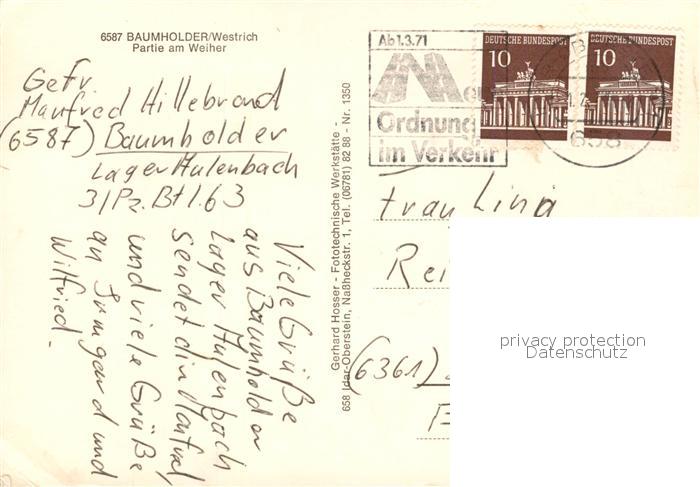 6587 BAUMHOLDER/Westrich
Partie am Weiher
Gefr.
Manfred Hillebrand
(6587) Baumholder
Lager Aulenbach
3/Pz.Btl.63
Viele Grüße
aus Baumholder
Lager Aulenbach
sendet dir Manfred,
und viele Grüße
an Irmgard und
Wilfried.
Gerhard Hosser - Fototechnische Werkstätte -
658 Idar-Oberstein, Naßheckstr. 1, Tel. (06781) 82 88 - Nr. 1350
Ab 1.3.71
Ordnung
im Verkehr
DEUTSCHE BUNDESPOST
10
DEUTSCHE BUNDESPOST
10
658
Frau Lina
Rei
(6361)
privacy protection
Datenschutz